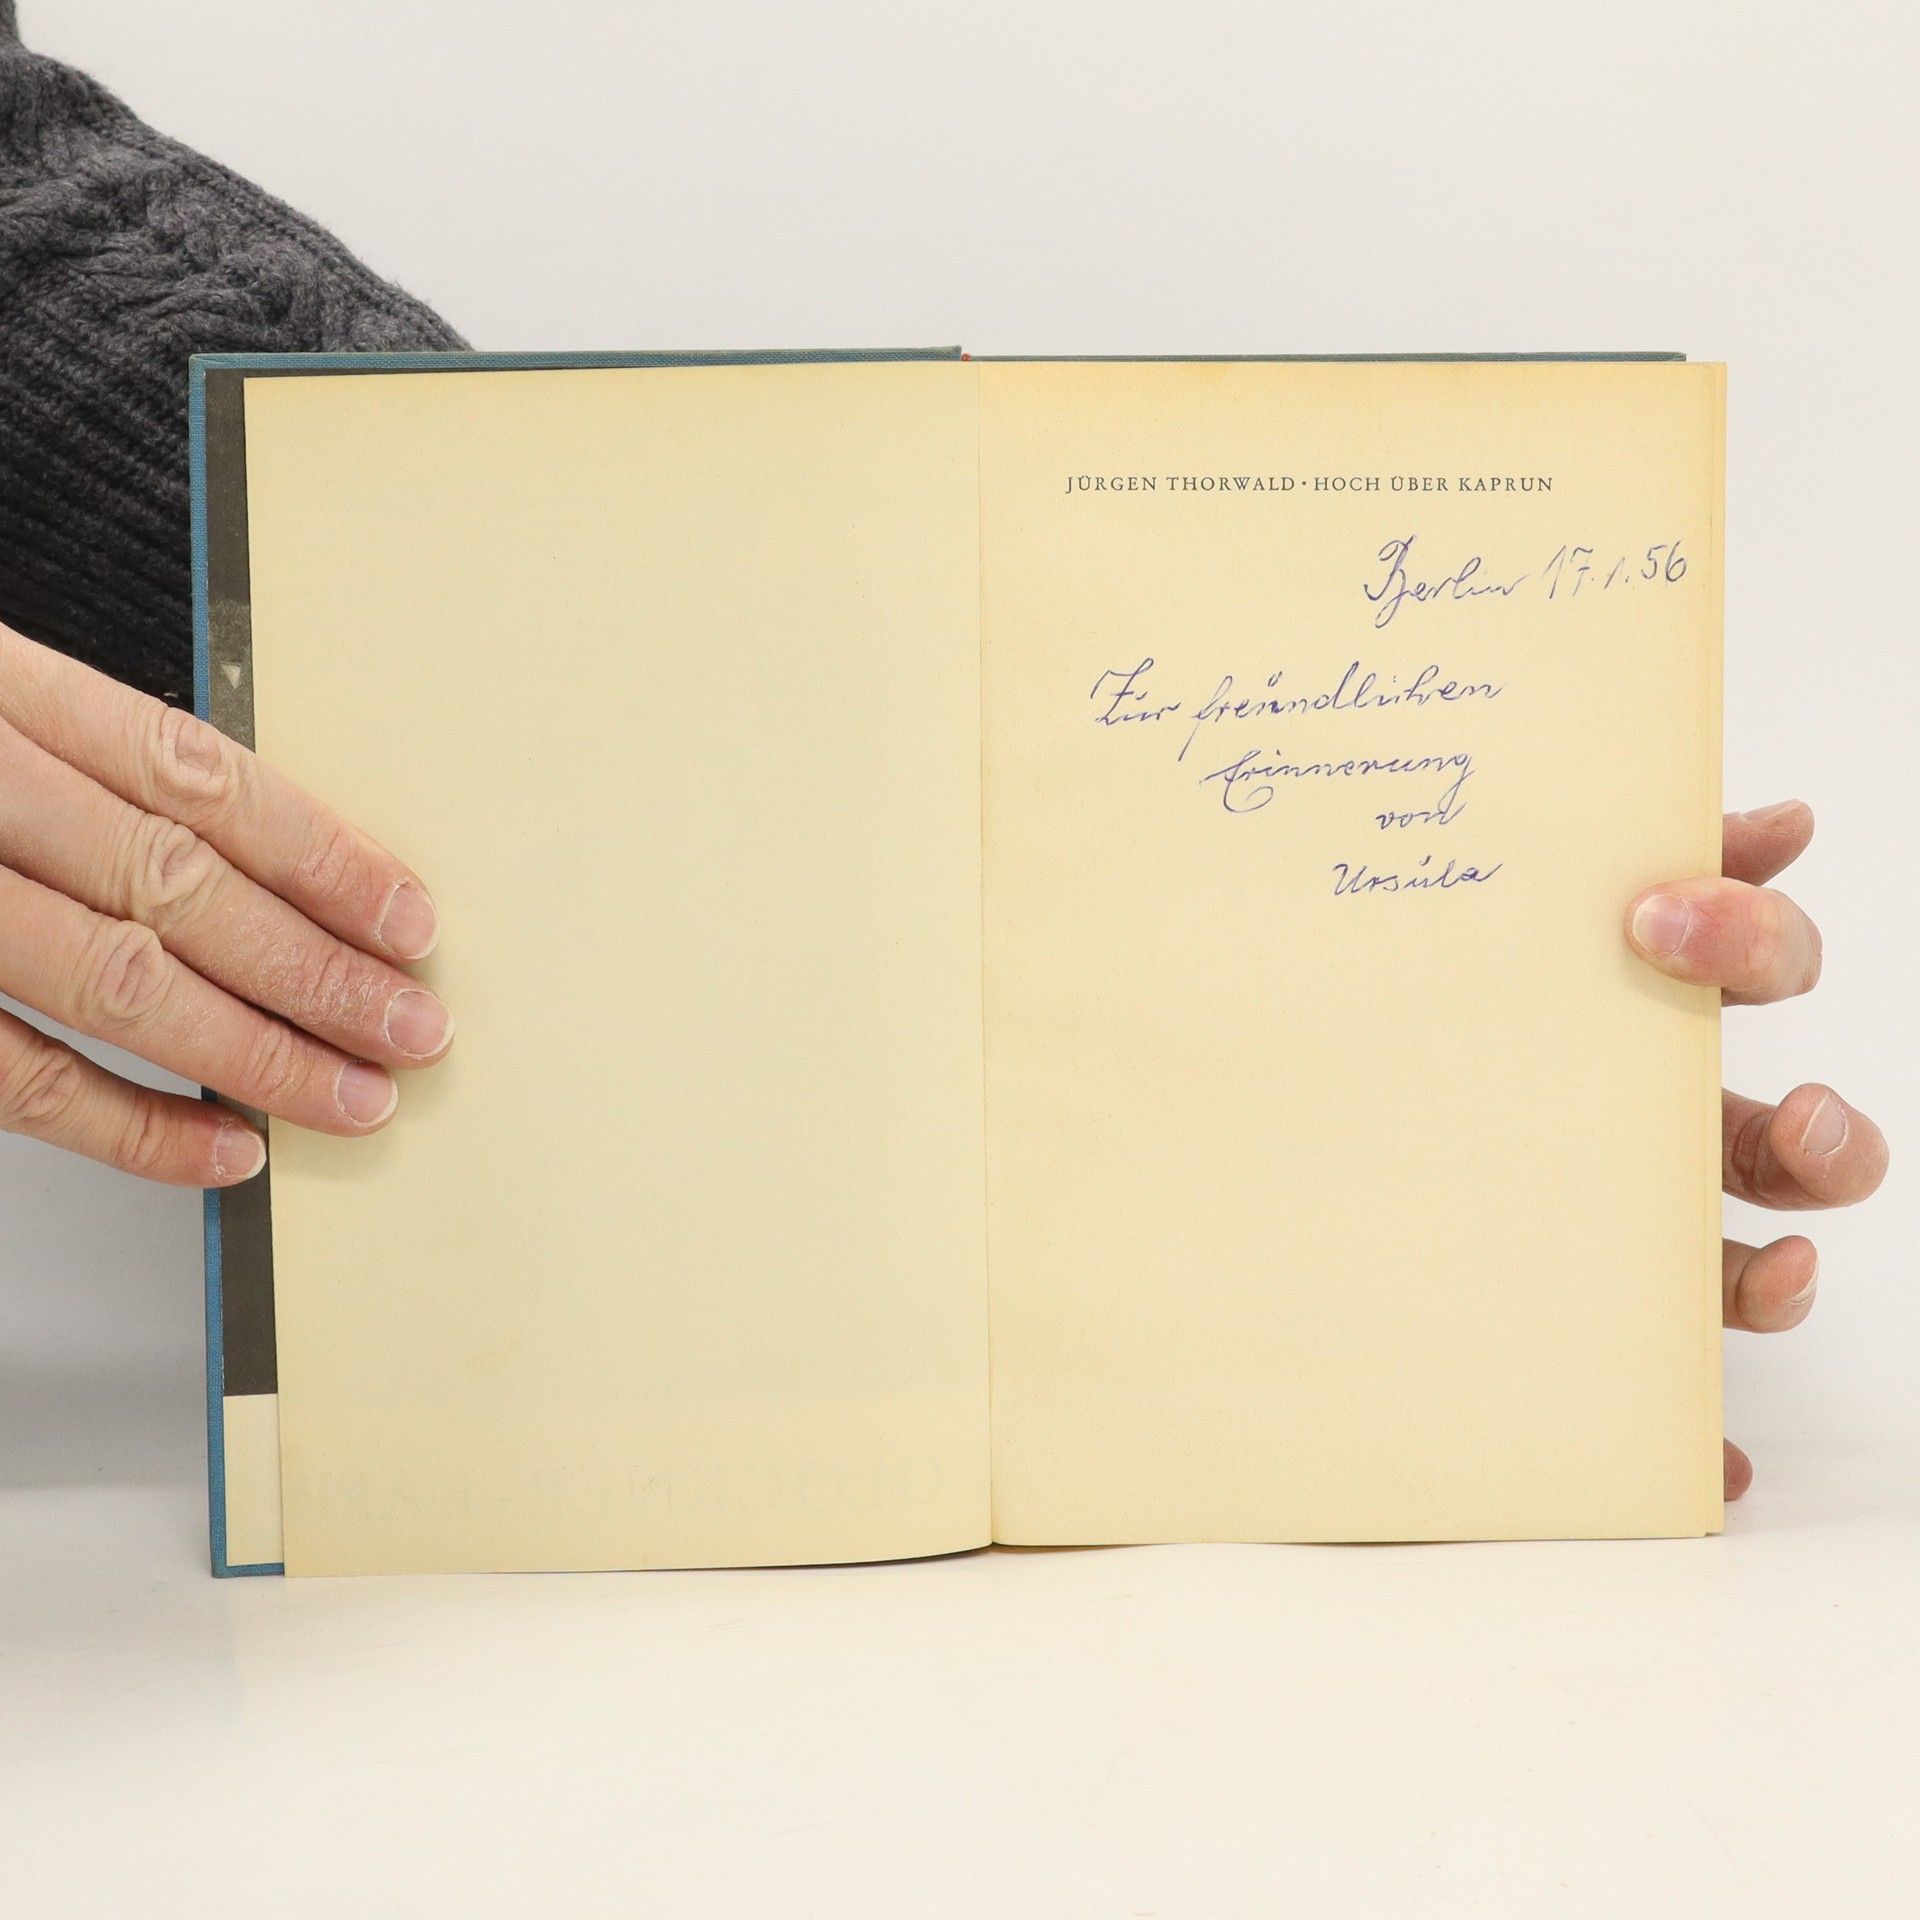 JÜRGEN THORWALD · HOCH ÜBER KAPRUN
Berlin 17.1.56
Zur freundlichen
Erinnerung
von
Ursula